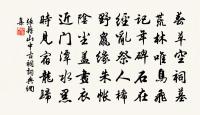 春草空祠墓
荒林唯鳥飛
記年碑石在
經亂祭人稀
野鼠緣朱帳
陰塵蓋畫衣
近門潭水黑
時見宿龍歸
張籍山中古祠詞典網